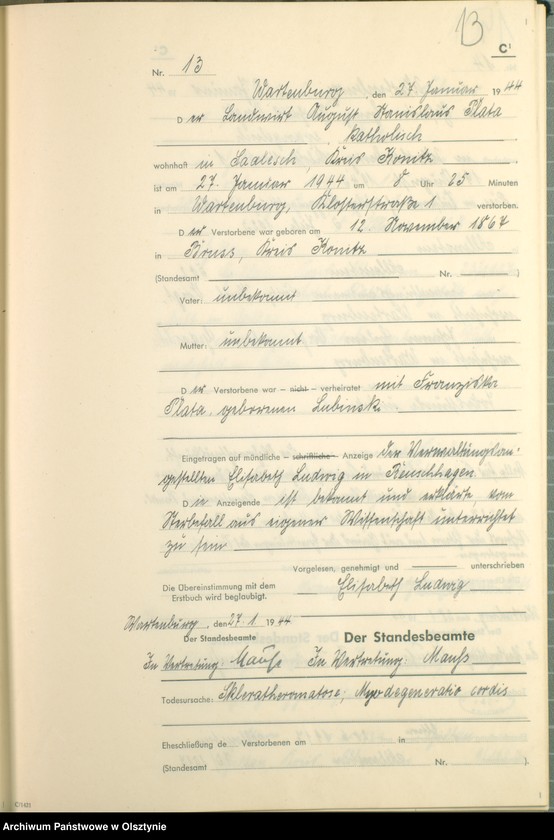 13
C¹
Nr. 13
Wartenburg, den 27. Januar 1944
Der Landwirt August Stanislaus Plata
, katholisch
wohnhaft in Saalesch, Kreis Konitz,
ist am 27. Januar 1944 um 8 Uhr 25 Minuten
in Wartenburg, Klosterstraße 1 verstorben.
Der Verstorbene war geboren am 12. November 1867
in Bruss, Kreis Konitz
(Standesamt Nr. )
Vater: unbekannt
Mutter: unbekannt
Der Verstorbene war – nicht – verheiratet mit Franziska
Plata, geborenen Lubinski.
Eingetragen auf mündliche – schriftliche – Anzeige der Verwaltungsan-
gestellten Elisabeth Ludwig in
Die Anzeigende ist bekannt und erklärte vom
Sterbefall aus eigener Wissenschaft unterrichtet
zu sein
Vorgelesen, genehmigt und unterschrieben
Die Übereinstimmung mit dem
Erstbuch wird beglaubigt.
Elisabeth Ludwig
Wartenburg, den 27. 1. 1944
Der Standesbeamte
Der Standesbeamte
In Vertretung: In Vertretung:
Todesursache: Skleratheromatose, Myodegeneratio cordis
Eheschließung de Verstorbenen am in
(Standesamt Nr. ).
Archiwum Państwowe w Olsztynie